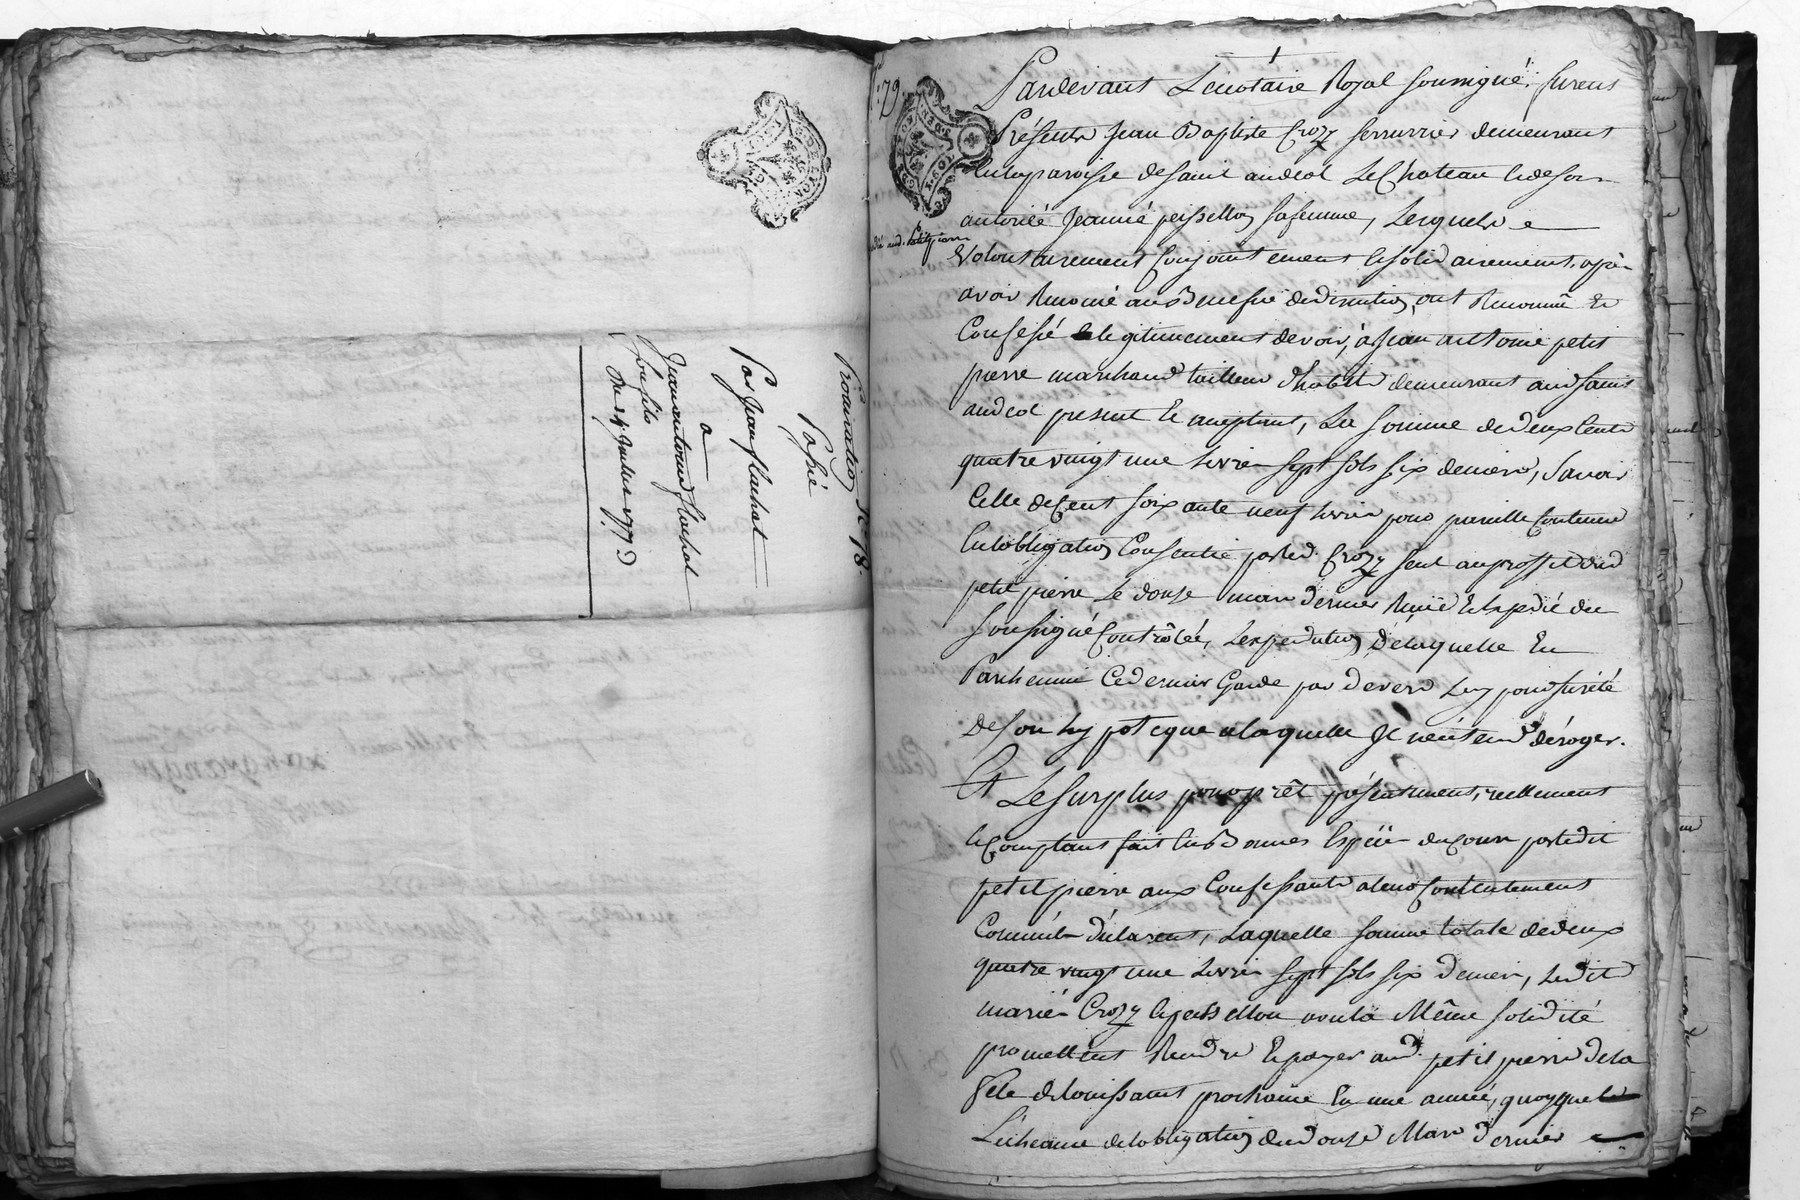 Procuration N 78.
Passé
Par Jean flachat
a
Jean antoine flachat
Son fils
Du 14 Juillet 1773
79
Pardevant Le notaire Royal soussigné furent
Présents Jean Baptiste Crozy serrurier demeurant
En la paroisse de saint andeol Le Château et de son
autorité Jeanne peisselon sa femme, Lesquels
Volontairement Conjointement et solidairement, après
avoir Renoncé au Benefice de division, ont Reconnu Et
Confessé legitimement devoir, à Jean antoine petit
pierre marchand tailleur d'habits demeurant aud saint
andeol present Et acceptant, La somme de deux Cents
quatre vingt une Livres sept sols six deniers, Savoir
Celle de Cent soixante neuf livres pour pareille Contenue
En l'obligation Consentie par led. Crozy seul au proffit dud
petit pierre Le douze mars dernier Reçüe Et Expedié du
soussigné Controlée, L'expedition de laquelle En
Parchemin Ce dernier Garde par devers Luy pour sureté
de son hypoteque a laquelle Il n'entend déroger.
Et Le surplus pour prêt présentement, réellement
et Comptant fait En Bonnes Espèces du Cours par ledit
petit pierre aux Confessants a leur Contentement
Comm'ils déclarent, Laquelle somme totale de deux
quatre vingt une Livres sept sols six deniers, Lesdits
mariés Crozy et peisselon sous la Même solidité
promettent Rendre Et payer aud. petit pierre de la
fête de toussaint prochaine En une année, quoyque
L'echeance de l'obligation du douze Mars dernier